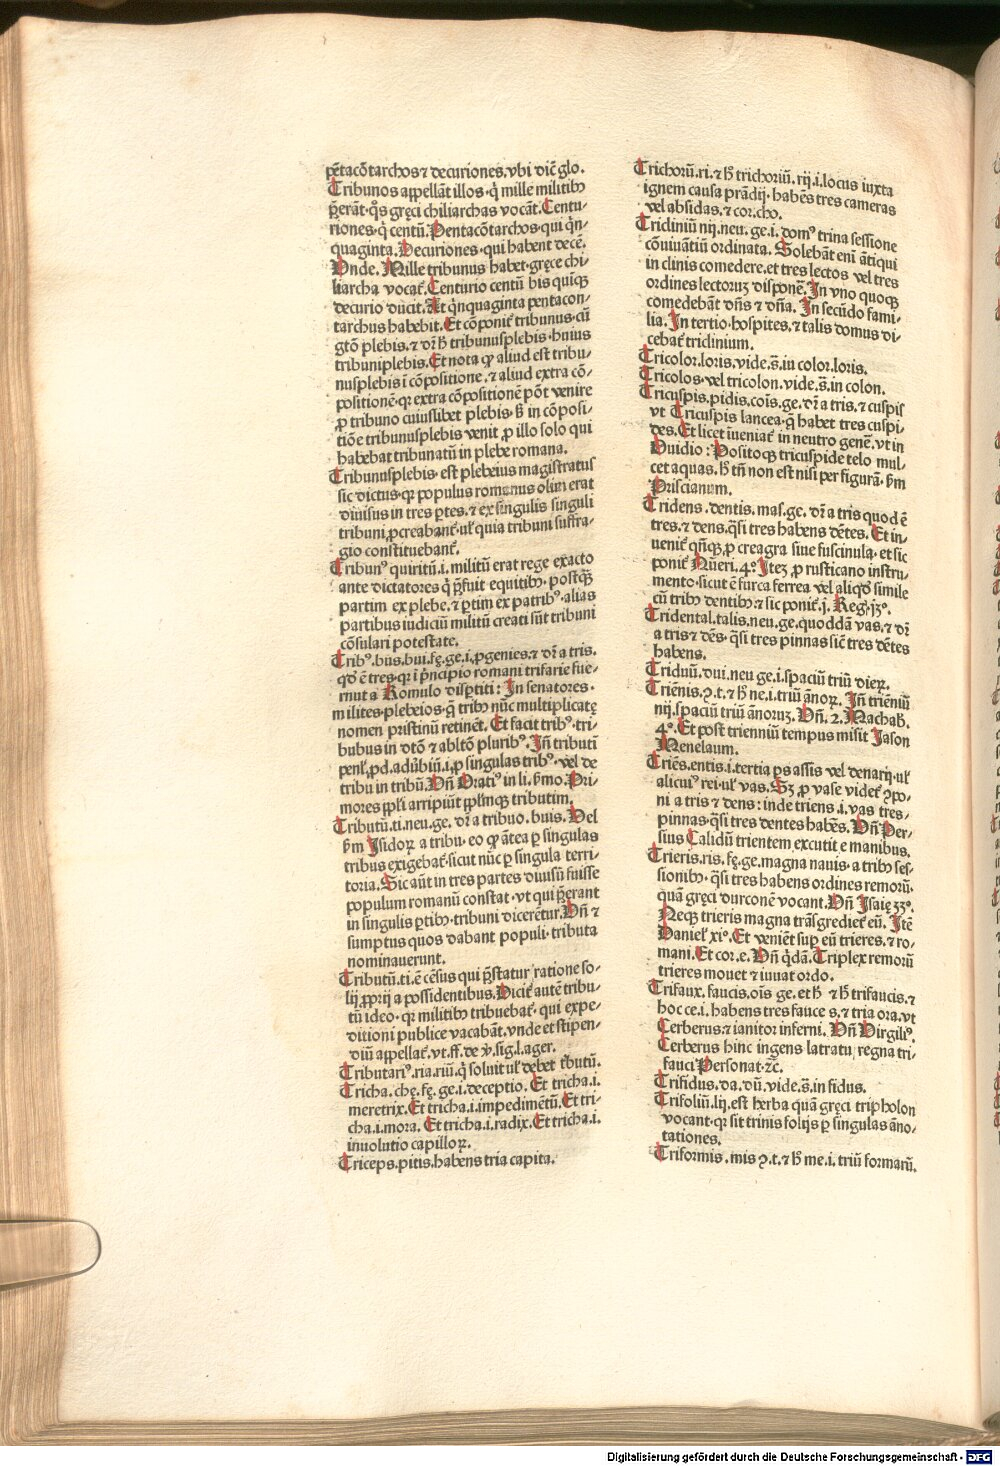 pētacōtarchos ⁊ decuriones. vbi dic̄ glo.
Tribunos appellāt illos · q̄ mille militibꝰ
p̄erāt · q̄s gręci chiliarchas vocāt. Centu-
riones · q̄ centū. Pentacōtarchos · qui q̄n-
quaginta. Decuriones · qui habent decē.
Vnde. Mille tribunus habet · gręce chi-
liarcha vocat̄. Centurio centū bis quīqꝫ
decurio ducit. At q̄nquaginta pentacon-
tarchus habebit. Et cōponit̄ tribunus · cū
gtō plebis. ⁊ dr̄ h̄ tribunusplebis · huius
tribuniplebis. Et nota ꝙ aliud est tribu-
nusplebis ī cōpositione. ⁊ aliud extra cō-
positionē · qꝛ extra cōpositionē pōt venire
ꝓ tribuno cuiuslibet plebis · sꝫ in cōposi-
tiōe tribunusplebis venit ꝓ illo solo qui
habebat tribunatū in plebe romana.
Tribunusplebis · est plebeius magistratus
sic dictus · qꝛ populus romanus olim erat
diuisus in tres ꝑtes. ⁊ ex singulis singuli
tribuni ꝓcreabant̄ · ul̄ quia tribuni suffra-
gio constituebant̄.
Tribunꝰ quiritū .i. militū erat rege exacto
ante dictatores q̄ p̄fuit equitibꝰ · postqꝫ
partim ex plebe. ⁊ ꝑtim ex patribꝰ · alias
partibus iudiciū militū creati sūt tribuni
cōsulari potestate.
Tribꝰ. bus. bui. fę. ge. i. ꝓgenies. ⁊ dr̄ a tris.
qd̄ ē tres · qꝛ ī p̄ncipio romani trifarie fue-
runt a Romulo disꝑtiti: In senatores ·
milites · plebeios · q̄ tribꝰ nūc multiplicatę
nomen pristinū retinēt. Et facit tribꝰ · tri-
bubus in dtō ⁊ abltō pluribꝰ. In̄ tributī
penl̄. ꝓd. adūbiū. i. ꝑ singulas tribꝰ · vel de
tribu in tribū. Vn̄ Oratiꝰ in li. s̄mo. Pri-
mores ppl̄i arripiūt ppl̄mqꝫ tributim.
Tributū. ti. neu. ge. dr̄ a tribuo. buis. Vel
s̄m Isidoꝝ a tribu. eo ꝙ ātea ꝑ singulas
tribus exigebat̄ · sicut nūc ꝑ singula terri-
toria. Sic aūt in tres partes diuisū fuisse
populum romanū constat · vt qui p̄erant
in singulis ꝑtibꝰ · tribuni dicerētur. Vn̄ ⁊
sumptus quos dabant populi · tributa
nominauerunt.
Tributū. ti. ē cēsus qui p̄statur ratione so-
lij ꝓprij a possidentibus. Dicit̄ autē tribu-
tū ideo · qꝛ militibꝰ tribuebat̄ · qui expe-
ditioni publice vacabāt. vnde et stipen-
diū appellat̄. vt. ff. de v̄. sig. l. ager.
Tributariꝰ. ria. riū. q̄ soluit ul̄ debet tributū.
Tricha. chę. fę. ge. i. deceptio. Et tricha .i.
meretrix. Et tricha .i. impedimētū. Et tri-
cha .i. mora. Et tricha .i. radix. Et tricha .i.
inuolutio capilloꝝ.
Triceps. pitis. habens tria capita.
Trichorū. ri. ⁊ h̄ trichoriū. rij. i. locus iuxta
ignem causa prādij · habēs tres cameras
vel absidas. ⁊ cor. cho.
Tricliniū nij. neu. ge. i. domꝰ trina sessione
cōuiuātiū ordinata. Solebāt eni āꝶqui
in clinis comedere. et tres lectos vel tres
ordines lectoruꝫ disponē. In vno quoqꝫ
comedebāt dn̄s ⁊ dn̄a. In secūdo fami-
lia. In tertio · hospites. ⁊ talis domus di-
cebat̄ triclinium.
Tricolor. loris. vide. s̄. in color. loris.
Tricolos · vel tricolon. vide. s̄. in colon.
Tricuspis. pidis. cōis. ge. dr̄ a tris. ⁊ cuspis
vt Tricuspis lancea · q̄ habet tres cuspi-
des. Et licet īueniat̄ in neutro genē. vt in
Ouidio: Positoqꝫ tricuspide telo mul-
cet aquas. h̄ tn̄ non est nisi per figurā · s̄m
Priscianum.
Tridens. dentis. mas. ge. dr̄ a tris quod ē
tres. ⁊ dens. q̄si tres habens dētes. Et in-
uenit̄ qn̄qꝫ ꝓ creagra siue fuscinula · et sic
ponit̄ Nūeri. 4º. Iteꝫ ꝓ rusticano instru-
mento · sicut ē furca ferrea vel aliqd̄ simile
cū tribꝰ dentibꝰ. ⁊ sic ponit̄ j. Reg. jꝫº.
Tridental. talis. neu. ge. quoddā vas. ⁊ dr̄
a tris ⁊ dēs. q̄si tres pinnas sic̄ tres dētes
habens.
Triduū. dui. neu ge. i. spaciū triū dieꝝ.
Triēnis. ⁊. t. ⁊ h̄ ne. i. triū ānoꝝ. In̄ trieniū
nij. spaciū triū ānoruꝫ. Vn̄. 2. Machab.
4º. Et post trienniū tempus misit Jason
Menelaum.
Triēs. entis. i. tertia ps assis vel denarij · ul̄
alicuiꝰ rei · ul̄ vas. Sꝫ ꝓ vase videt̄ ꝯpo-
ni a tris ⁊ dens: inde triens .i. vas tres ·
pinnas · q̄si tres dentes habēs. Vn̄ Per-
sius Calidū trientem excutit e manibus.
Trieris. ris. fę. ge. magna nauis · a tribꝰ ses-
sionibꝰ · q̄si tres habens ordines remorū ·
quā gręci durconē vocant. Vn̄ Isaię ꝫꝫº.
Necqꝫ trieris magna trāsgrediet̄ eū. Itē
Daniel̄ xiº. Et veniēt sup eū trieres. ⁊ ro-
mani. Et cor. e. Vn̄ q̄dā. Triplex remorū
trieres mouet ⁊ iuuat ordo.
Trifaux. faucis. oīs ge. et h̄ ⁊ h̄ trifaucis. ⁊
hoc ce. i. habens tres fauces. ⁊ tria ora. vt
Cerberus. ⁊ ianitor inferni. Vn̄ Virgiliꝰ.
Cerberus hinc ingens latratu regna tri-
fauci Personat ⁊c̄.
Trifidus. da. dū. vide. s̄. in fidus.
Trifoliū. lij. est herba quā gręci tripholon
vocant · qꝛ sit trinis folijs ꝑ singulas āno-
tationes.
Triformis. mis ꝯ. t. ⁊ h̄ me. i. triū formarū.
Digitalisierung gefördert durch die Deutsche Forschungsgemeinschaft - DFG